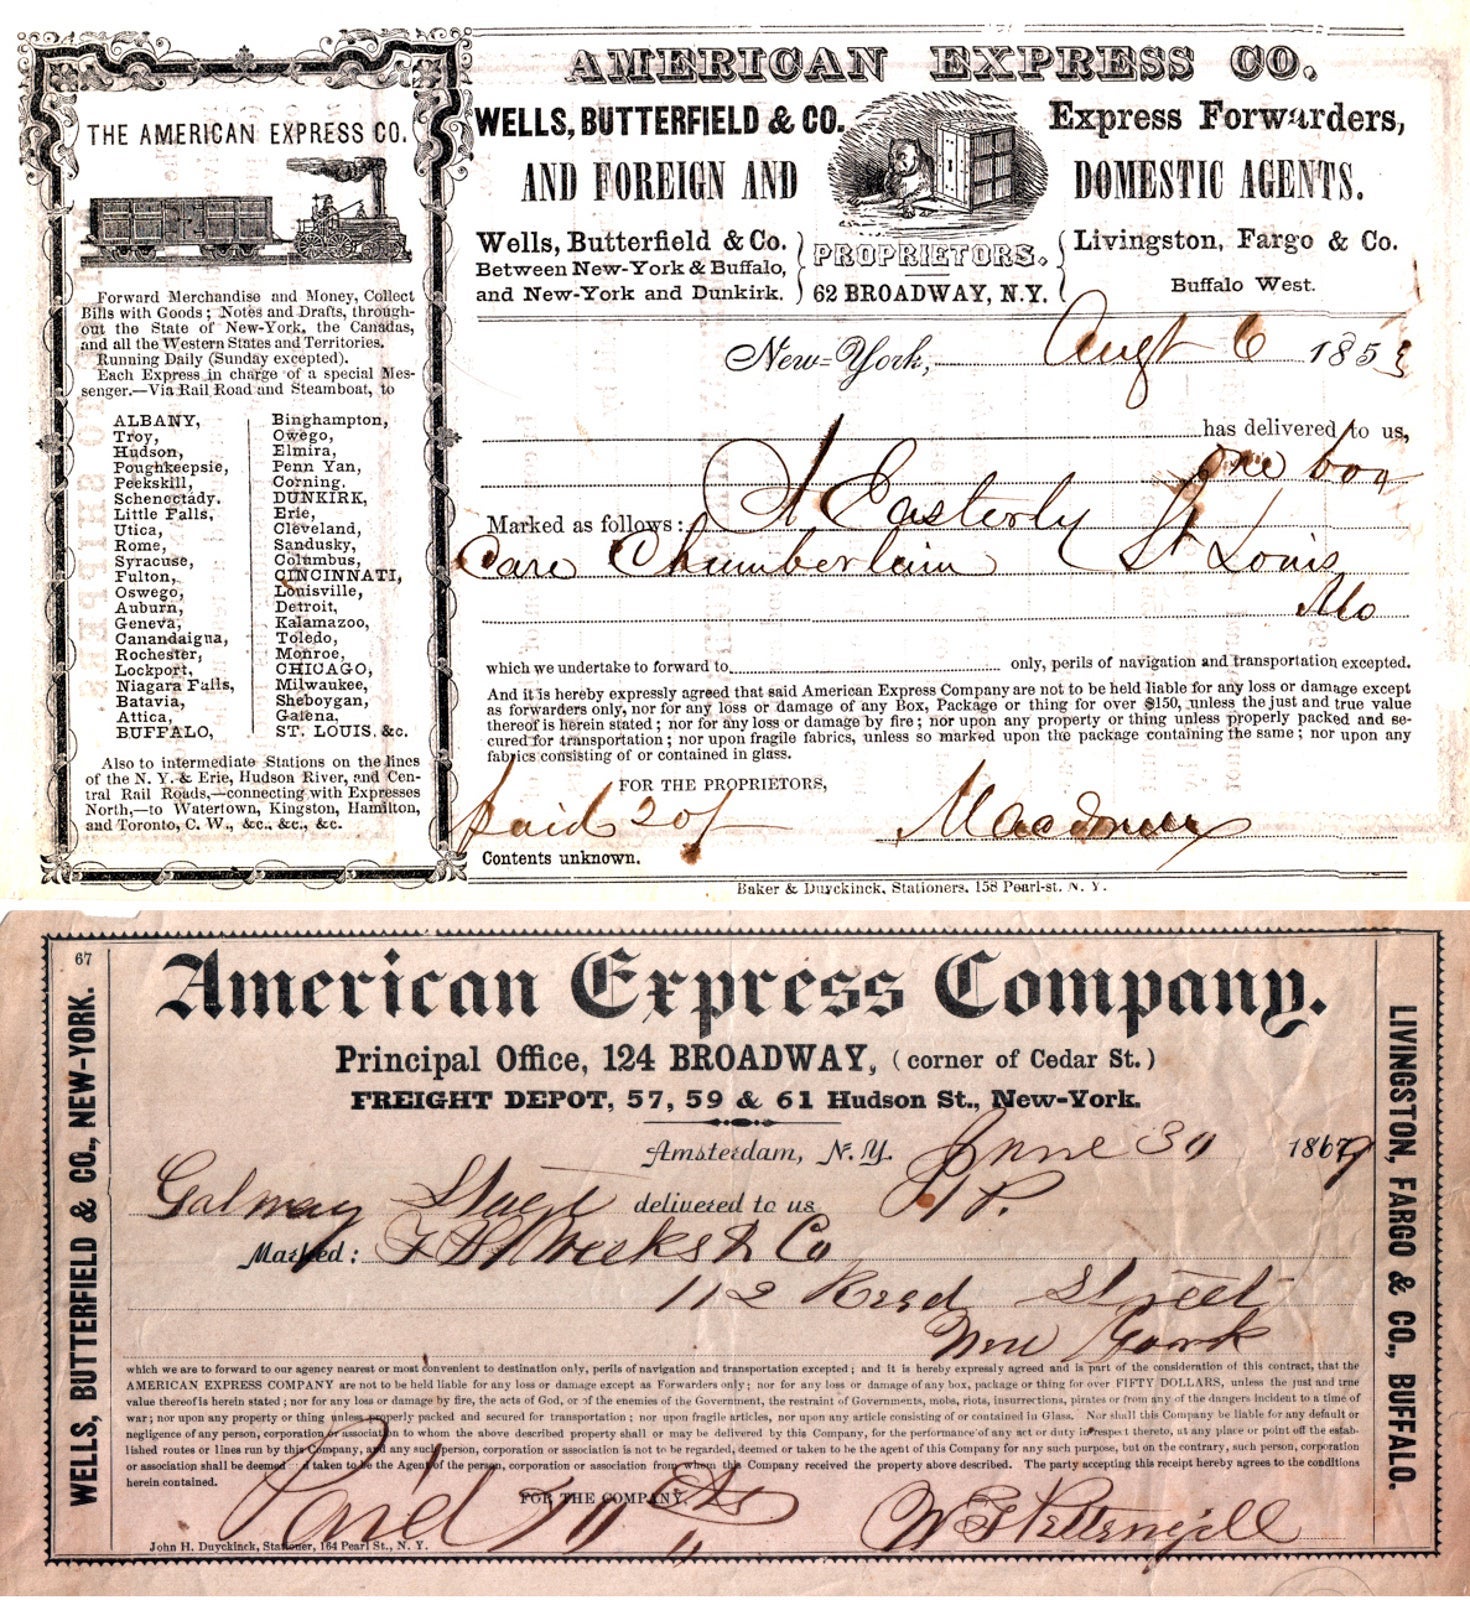 THE AMERICAN EXPRESS CO.
Forward Merchandise and Money, Collect
Bills with Goods; Notes and Drafts, through-
out the State of New-York, the Canadas,
and all the Western States and Territories.
Running Daily (Sunday excepted).
Each Express in charge of a special Mes-
senger.—Via Rail Road and Steamboat, to
ALBANY,
Troy,
Hudson,
Poughkeepsie,
Peekskill,
Schenectady.
Little Falls,
Utica,
Rome,
Syracuse,
Fulton,
Oswego,
Auburn,
Geneva,
Canandaigua,
Rochester,
Lockport,
Niagara Falls,
Batavia,
Attica,
BUFFALO,
Binghampton,
Owego,
Elmira,
Penn Yan,
Corning.
DUNKIRK,
Erie,
Cleveland,
Sandusky,
Columbus,
CINCINNATI,
Louisville,
Detroit,
Kalamazoo,
Toledo,
Monroe,
CHICAGO,
Milwaukee,
Sheboygan,
Galena,
ST. LOUIS, &c.
Also to intermediate Stations on the lines
of the N. Y. & Erie, Hudson River, and Cen-
tral Rail Roads,—connecting with Expresses
North,—to Watertown, Kingston, Hamilton,
and Toronto, C. W., &c., &c., &c.
AMERICAN EXPRESS CO.
WELLS, BUTTERFIELD & CO. Express Forwarders,
AND FOREIGN AND DOMESTIC AGENTS.
Wells, Butterfield & Co.
Between New-York & Buffalo,
and New-York and Dunkirk.
PROPRIETORS.
62 BROADWAY, N.Y.
Livingston, Fargo & Co.
Buffalo West.
New-York, Augt 6 1853
has delivered to us,
one box
Marked as follows: A Easterly
Care Chamberlain St Louis
Mo
which we undertake to forward to only, perils of navigation and transportation excepted.
And it is hereby expressly agreed that said American Express Company are not to be held liable for any loss or damage except
as forwarders only, nor for any loss or damage of any Box, Package or thing for over $150, unless the just and true value
thereof is herein stated; nor for any loss or damage by fire; nor upon any property or thing unless properly packed and se-
cured for transportation; nor upon fragile fabrics, unless so marked upon the package containing the same; nor upon any
fabrics consisting of or contained in glass.
FOR THE PROPRIETORS,
paid 20/
Contents unknown.
Baker & Duyckinck, Stationers, 158 Pearl-st. N. Y.
67
WELLS, BUTTERFIELD & CO., NEW-YORK.
American Express Company.
Principal Office, 124 BROADWAY, (corner of Cedar St.)
FREIGHT DEPOT, 57, 59 & 61 Hudson St., New-York.
Amsterdam, N. Y. June 30 1869
Galway delivered to us 1 P.
Marked: Weeks & Co
112 Read Street
New York
which we are to forward to our agency nearest or most convenient to destination only, perils of navigation and transportation excepted; and it is hereby expressly agreed and is part of the consideration of this contract, that the
AMERICAN EXPRESS COMPANY are not to be held liable for any loss or damage except as Forwarders only; nor for any loss or damage of any box, package or thing for over FIFTY DOLLARS, unless the just and true
value thereof is herein stated; nor for any loss or damage by fire, the acts of God, or of the enemies of the Government, the restraint of Governments, mobs, riots, insurrections, pirates or from any of the dangers incident to a time of
war; nor upon any property or thing unless properly packed and secured for transportation; nor upon fragile articles, nor upon any article consisting of or contained in Glass. Nor shall this Company be liable for any default or
negligence of any person, corporation or association to whom the above described property shall or may be delivered by this Company, for the performance of any act or duty in respect thereto, at any place or point off the estab-
lished routes or lines run by this Company, and any such person, corporation or association is not to be regarded, deemed or taken to be the agent of this Company for any such purpose, but on the contrary, such person, corporation
or association shall be deemed taken to be the Agent of the person, corporation or association from whom this Company received the property above described. The party accepting this receipt hereby agrees to the conditions
herein contained.
FOR THE COMPANY,
Paid
W F Pettengill
John H. Duyckinck, Stationer, 164 Pearl St., N. Y.
LIVINGSTON, FARGO & CO., BUFFALO.